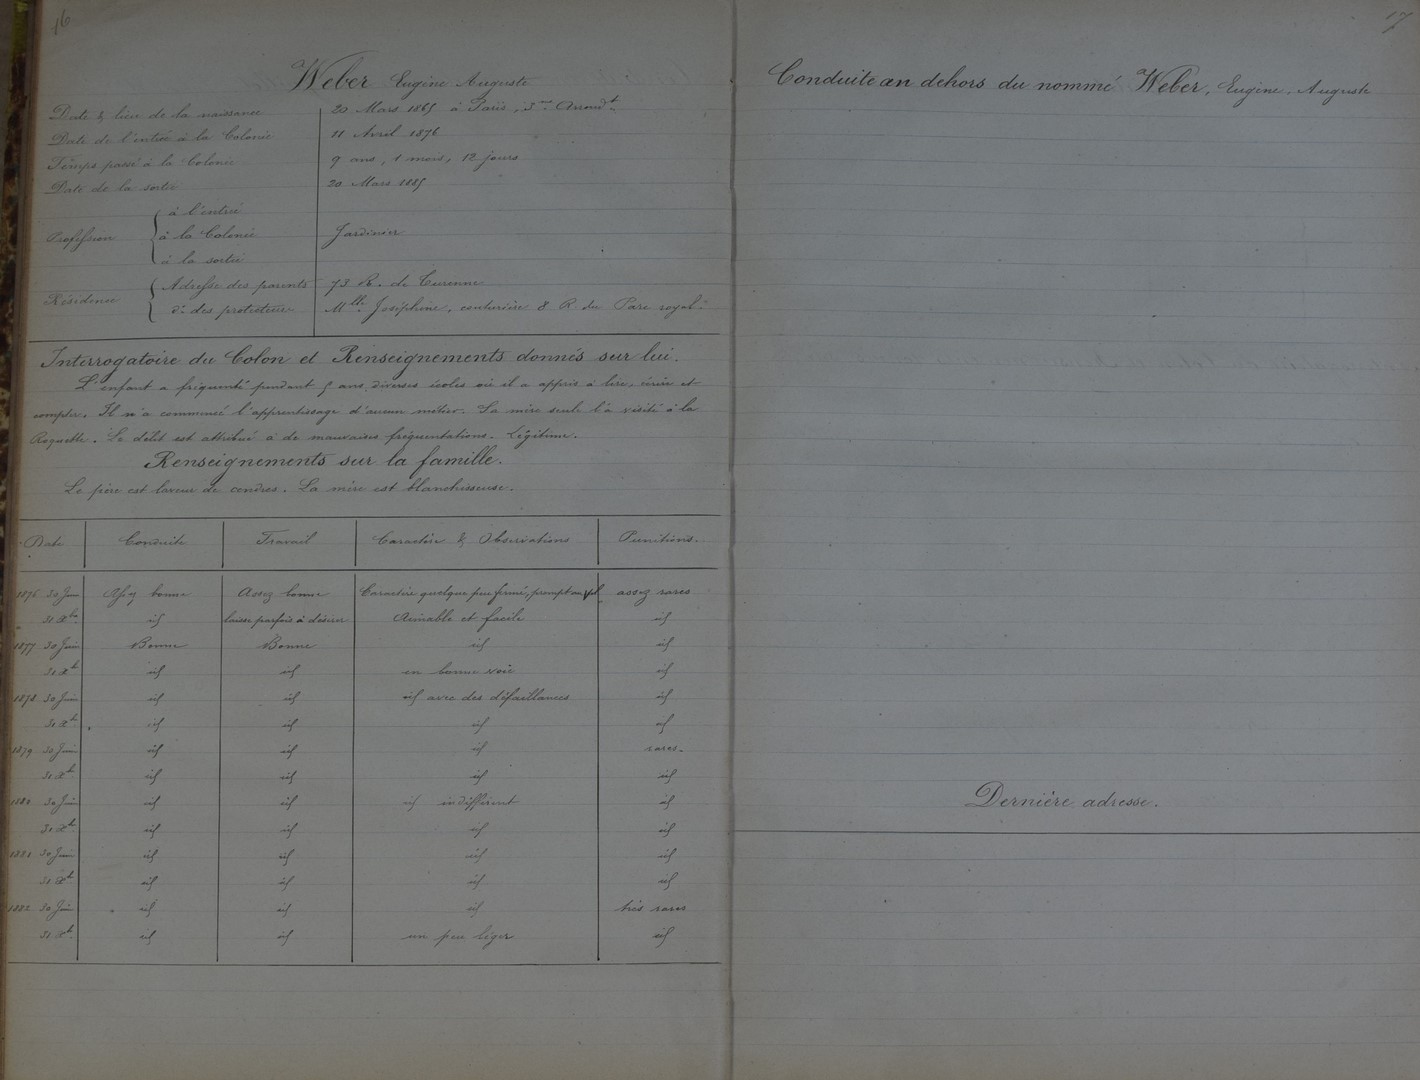 16
Weber Eugène Auguste
Date & lieu de la naissance 20 Mars 1865 à Paris, 3me Arrondt
Date de l'entrée à la Colonie 11 Avril 1876
Temps passé à la Colonie 9 ans, 1 mois, 12 jours
Date de la sortie 20 Mars 1885
Profession
à l'entrée
à la Colonie Jardinier
à la sortie
Résidence
Adresse des parents 73 R. de Turenne
do des protecteurs Mlle Joséphine, couturière 8 R. du Parc royal
Interrogatoire du Colon et Renseignements donnés sur lui.
L'enfant a fréquenté pendant 5 ans diverses écoles où il a appris à lire, écrire et
compter. Il n'a commencé l'apprentissage d'aucun métier. Sa mère seule l'a visité à la
Roquette. Le délit est attribué à de mauvaises fréquentations. Légitime.
Renseignements sur la famille.
Le père est laveur de cendres. La mère est blanchisseuse.
Date Conduite Travail Caractère & Observations Punitions.
1876 30 Juin Assez bonne Assez bonne Caractère quelque peu fermé, prompt assez rares
31 Xbre id laisse parfois à désirer Aimable et facile id
1877 30 Juin Bonne Bonne id id
31 Xb id id en bonne voie id
1878 30 Juin id id id avec des défaillances id
31 Xb id id id id
1879 30 Juin id id id rares.
31 Xb id id id id
1880 30 Juin id id id indifférent id
31 Xb id id id id
1881 30 Juin id id id id
31 Xb id id id id
1882 30 Juin id id id très rares
31 Xb id id un peu léger id
17
Conduite en dehors du nommé Weber, Eugène, Auguste
Dernière adresse.